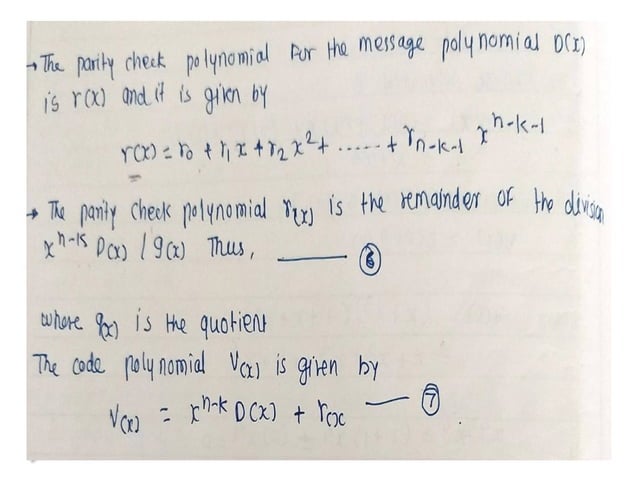 → The parity check polynomial for the message polynomial D(x)
is r(x) and it is given by
r(x) = r₀ + r₁ x + r₂ x² + ...... + rₙ₋ₖ₋₁ x^n-k-1
→ The parity check polynomial r(x) is the remainder of the division
x^n-k D(x) / g(x) Thus, —— ⑥
where q(x) is the quotient
The code polynomial V(x) is given by
V(x) = x^n-k D(x) + r(x —— ⑦